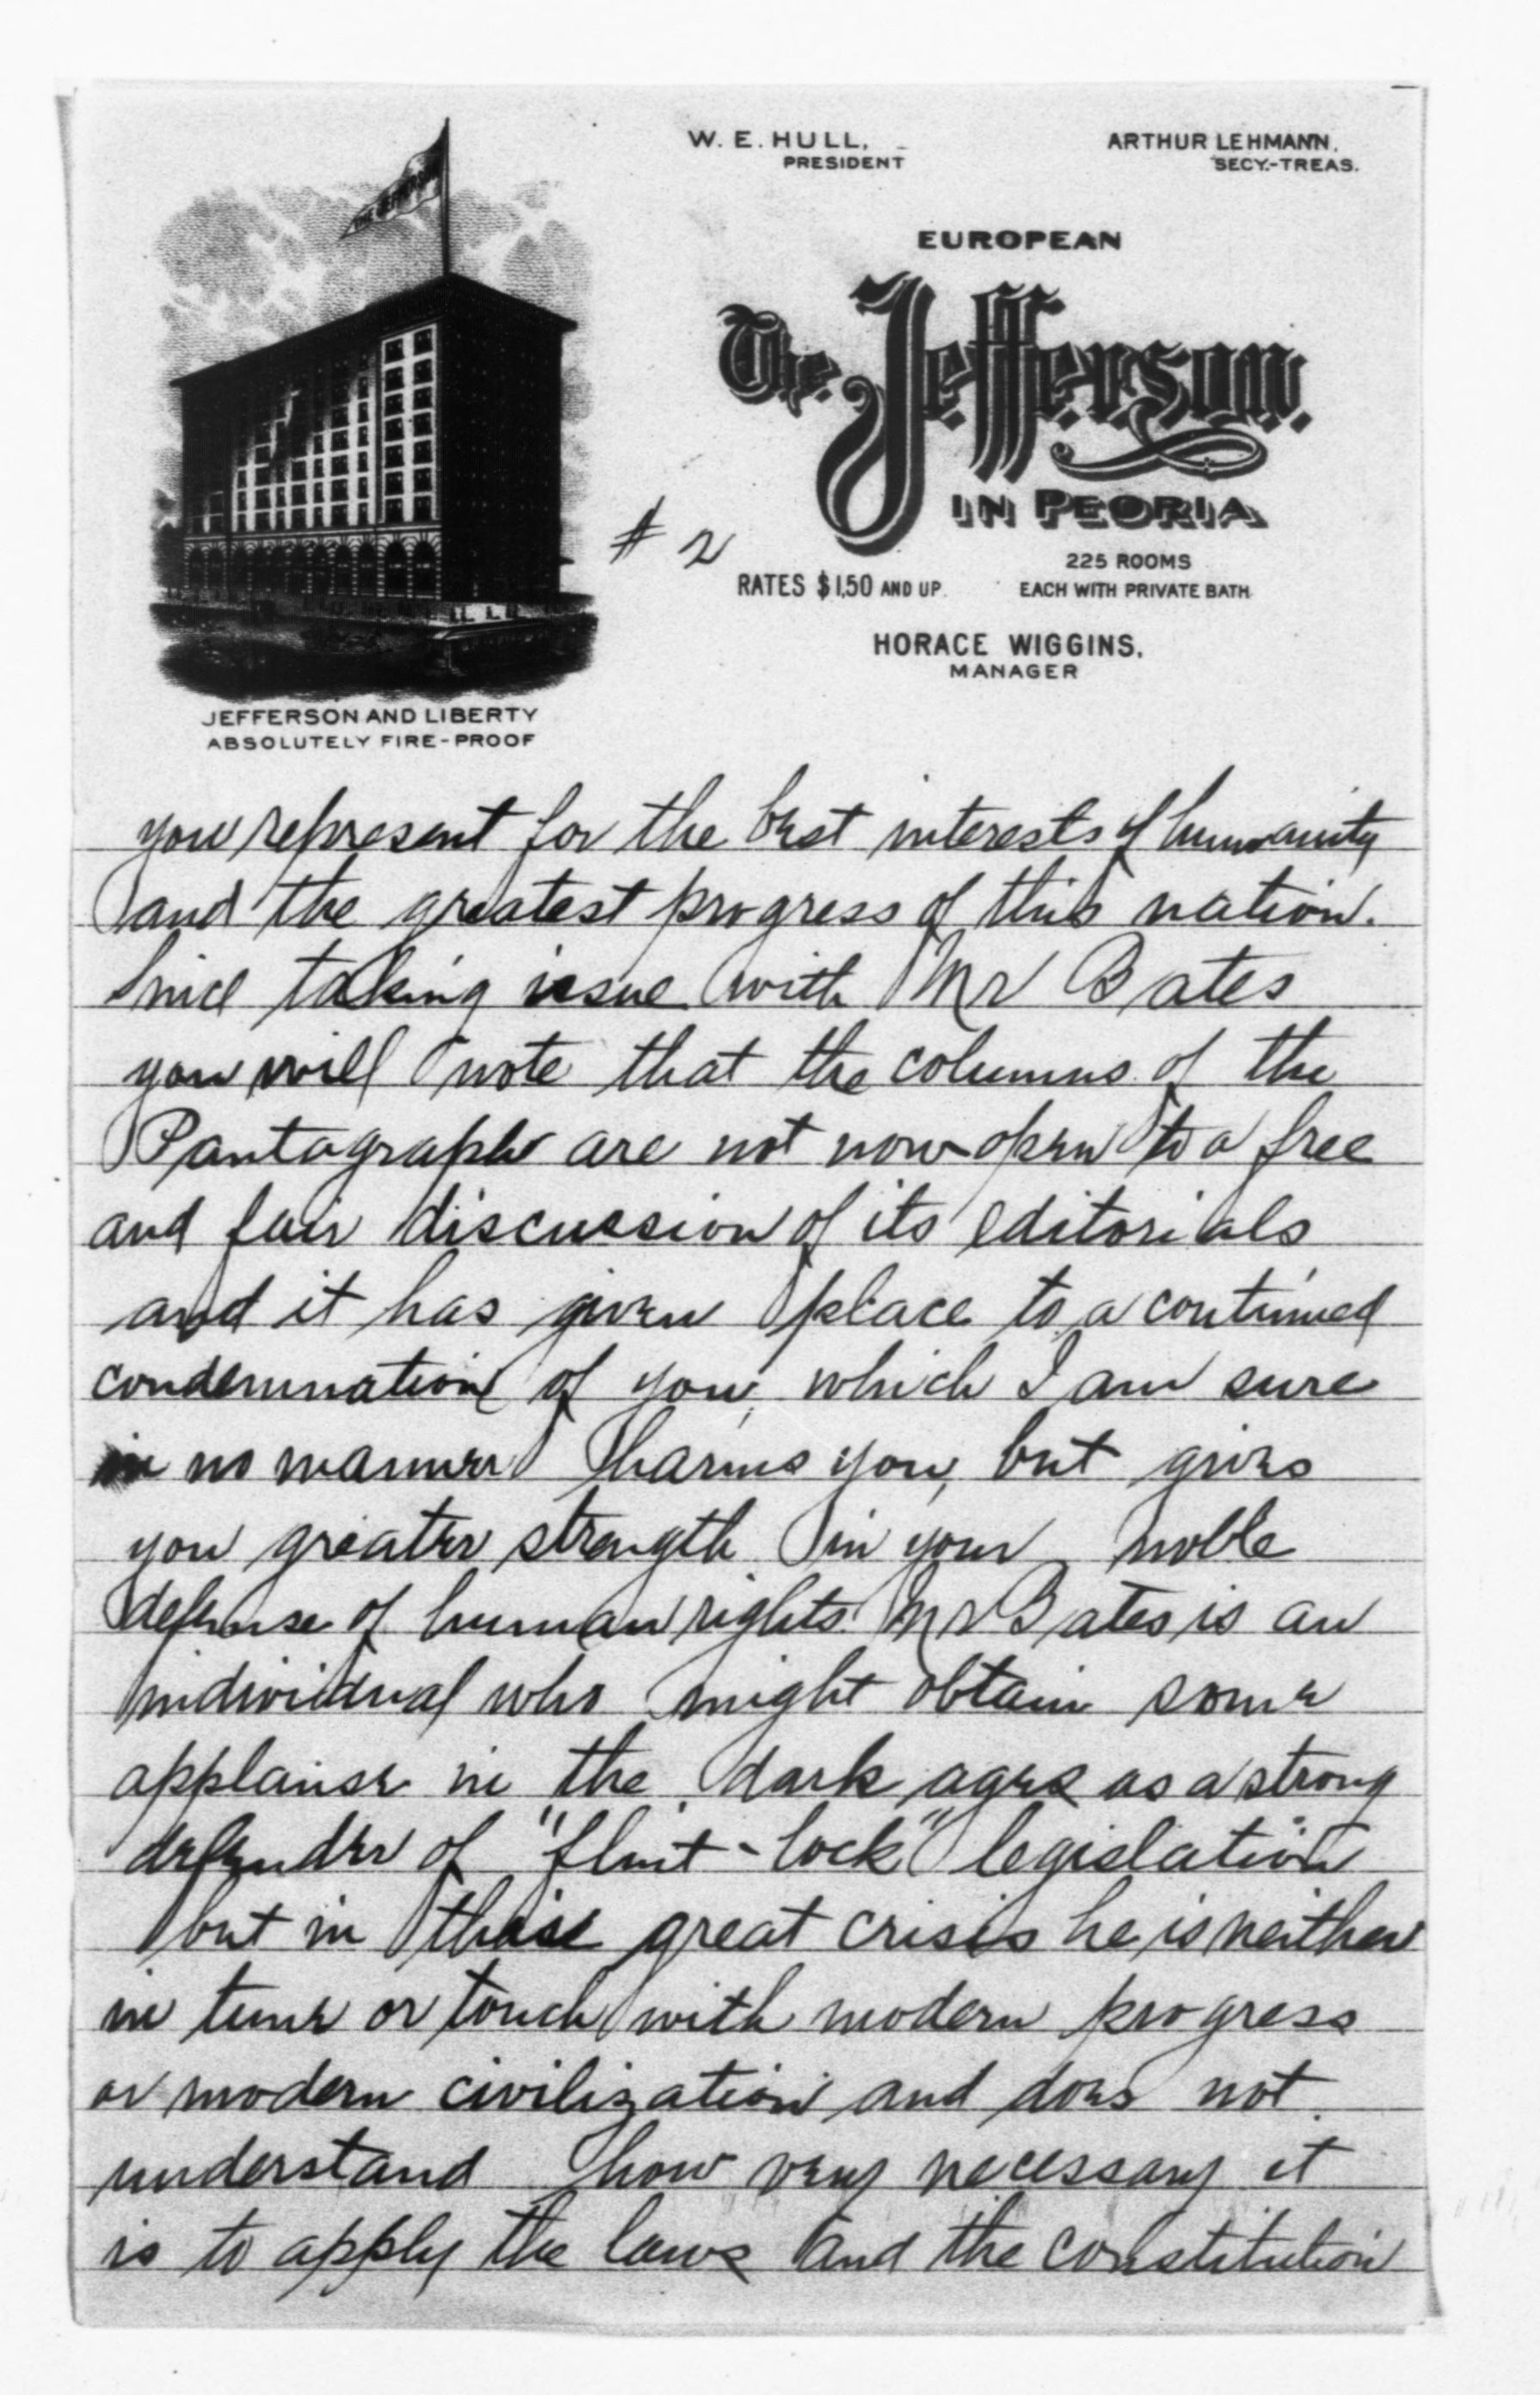 W. E. HULL,
PRESIDENT
ARTHUR LEHMANN,
SECY.-TREAS.
THE JEFFERSON
EUROPEAN
The Jefferson
IN PEORIA
225 ROOMS
EACH WITH PRIVATE BATH
RATES $1.50 AND UP.
HORACE WIGGINS,
MANAGER
JEFFERSON AND LIBERTY
ABSOLUTELY FIRE-PROOF
# 2
you represent for the best interests of humanity
and the greatest progress of this nation.
Since taking issue with Mr Bates
you will note that the columns of the
Pantagraph are not now open to a free
and fair discussion of its editorials
and it has given place to a continued
condemnation of you, which I am sure
in no manner harms you, but gives
you greater strength in your noble
defense of human rights. Mr Bates is an
individual who might obtain some
applause in the dark ages as a strong
defender of "flint-lock" legislation
but in these great crisis he is neither
in tune or touch with modern progress
or modern civilization and does not
understand how very necessary it
is to apply the laws and the constitution